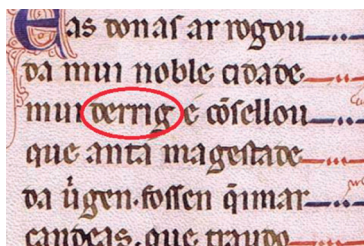 Eas donas ar rogou
da mui noble cidade
mui derrig e cõsellou
que anta magestade
da ũgen. fossen q̃imar
candeas. que traudo